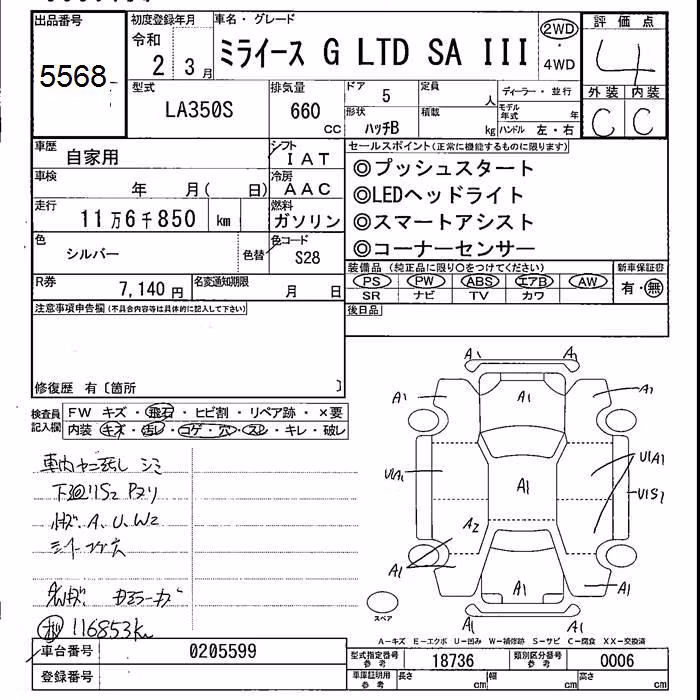 出品番号
5568
初度登録年月
令和
2 3月
車名・グレード
ミライース G LTD SA III
2WD
・
4WD
評価点
4
外装 内装
C C
型式
LA350S
排気量
660
cc
ドア
5
定員
人
形状
ハッチB
積載
kg
ディーラー・並行
モデル
年式 年
ハンドル 左・右
車歴
自家用
シフト
IAT
車検
年 月( 日)
冷房
AAC
走行
11万6千850 km
燃料
ガソリン
色
シルバー
色替
色コード
S28
R券
7,140円
名変通知期限
月 日
セールスポイント(正常に機能するものに限ります)
◎プッシュスタート
◎LEDヘッドライト
◎スマートアシスト
◎コーナーセンサー
装備品(純正品に限り○をつけてください)
新車保証書
PS PW ABS エアB AW
SR ナビ TV カワ
有・無
後日品
注意事項申告欄(不具合内容等は具体的に記入して下さい)
修復歴 有〔箇所 〕
検査員
記入欄
FW キズ・飛石・ヒビ割・リペア跡・×要
内装 キズ・汚レ・コゲ・穴・スレ・キレ・破レ
シミ
A、U、W2
116853km
A1 A1
A1 A1 A1
U1A1 A1 U1A1
U1S1
A2
A1 A1 A1
A1 A1
スペア
A-キズ E-エクボ U-凹み W-補修跡 S-サビ C-腐食 XX-交換済
車台番号
0205599
登録番号
型式指定番号
参考
18736
類別区分番号
参考
0006
車庫証明用
参考
長さ cm
幅 cm
高さ cm